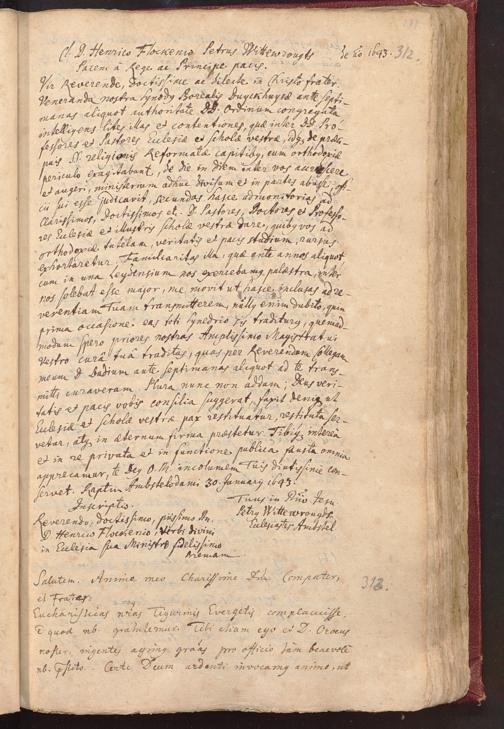 Cl. D. Henrico Flockenio Petrus Wittewrongh de Eo 1693. 312.
Pacem à Rege ac Principe pacis.
Vir Reverende, doctissime ac dilecte in Christo frater,
Veneranda nostra Synody Borealis ante septi-
manas aliquot authoritate DD. Ordinum congregata
intelligens lites illas et contentiones, quæ inter DD. Pro-
fessores et Pastores Ecclesiæ et Scholæ vestræ, idq; de præci-
puis SS. religionis Reformatæ capitibq, cum orthodoxiæ
periculo exagitabant, de die in diem inter vos accrescere
et augeri, ministerium adhuc divisum et in partes
sui esse judicavit, secundas hasce admonitorias ad
Clarissimos, doctissimos et D. Pastores, Doctores et Professo-
res Ecclesiæ et illustris Scholæ vestræ dare, quibq vos ad
orthodoxiæ tutelam, veritatis et pacis studium, rursus
exhortaretur. Familiaritas illa, quæ ante annos aliquot
cum in una Leydensium nos exercebamq palæstra, inter
nos solebat esse major, me movit ut hasce inclusas ad re-
verentiam Tuam transmitterem, nullq enim dubito, quin
prima occasione eas toti Synedrio sis traditurq, quemad-
modum spero priores nostras Amplissimo Magistratui
Vestro curâ tuâ traditas, quas per Reverendum Collegam
meum D. Badium ante septimanas aliquot ad te trans-
mitti curaveram. Plura nunc non addam; Deus veri-
tatis et pacis vobis consilia suggerat, faxit deniq ut
Ecclesiæ et Scholæ vestræ pax restituatur, restituta ser-
vetur, atq in æternum firma præstetur. Tibiq interea
et in re privata et in functione publica fausta omnia
apprecamur, te Deq O. M. incolumem Tuis diutissimè con-
servet. Raptim Amstelodami 30. January 1693.
Inscriptio. Tuus in Dño Jesu
Reverendo, doctissimo, piissimo Dn. Petrq Wittewronghq
D. Henrico Flockenio, Verbi divini Ecclesiastes Amstel
in Ecclesia sua Ministro fidelissimo
Salutem. Animæ meo Charissime Dñe Compater, 313.
et Frater.
Eucharisticas nřas Tigurinis Evergetis complacuisse,
E quod nb. gratulemur. Tibi etiam ego et D.
noster, ingentes agimq grãas pro officio tam benevolè
nb. pstito. Certe Deum ardenti invocamq animo, ut